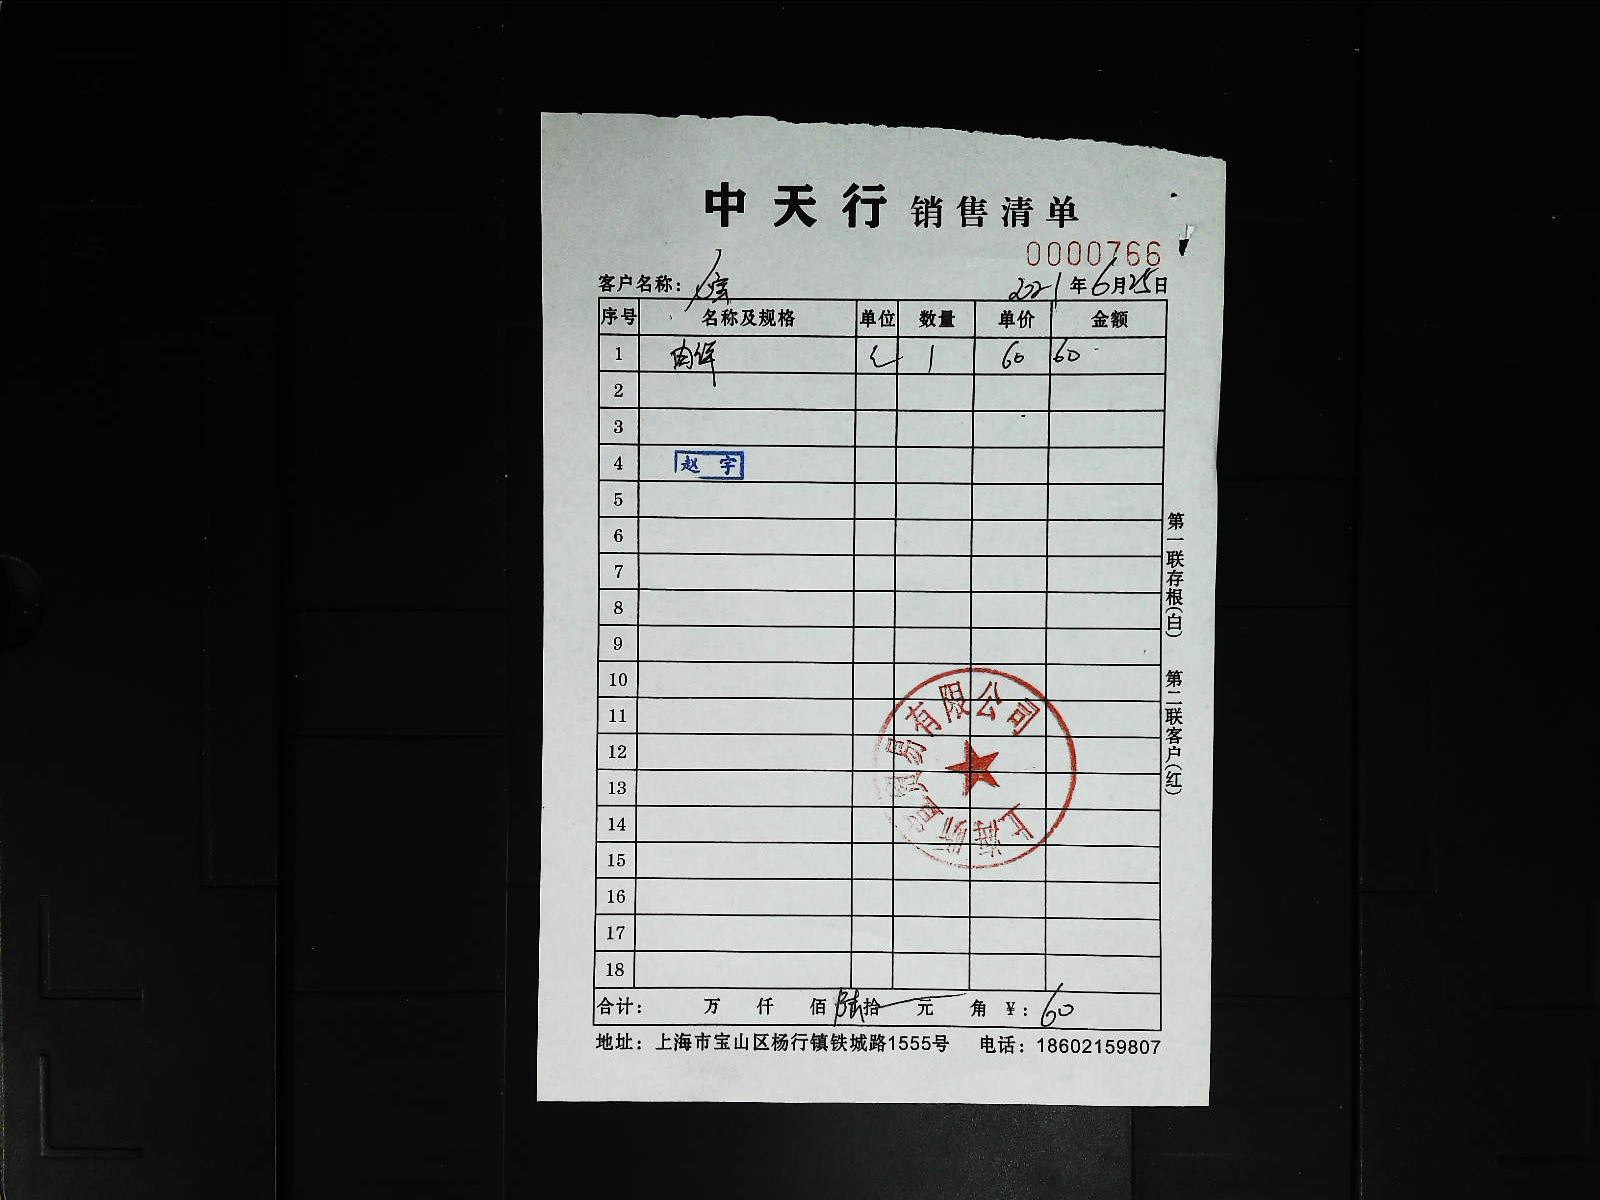 中天行 销售清单
0000766
客户名称： 2021年6月25日
序号 名称及规格 单位 数量 单价 金额
1 1 60 60
2
3
4 赵宇
5
6
7
8
9
10
11
12
13
14
15
16
17
18
合计： 万 仟 佰 陆拾 元 角 ￥：60
地址：上海市宝山区杨行镇铁城路1555号 电话：18602159807
第一联存根(白) 第二联客户(红)
上海 贸易有限公司